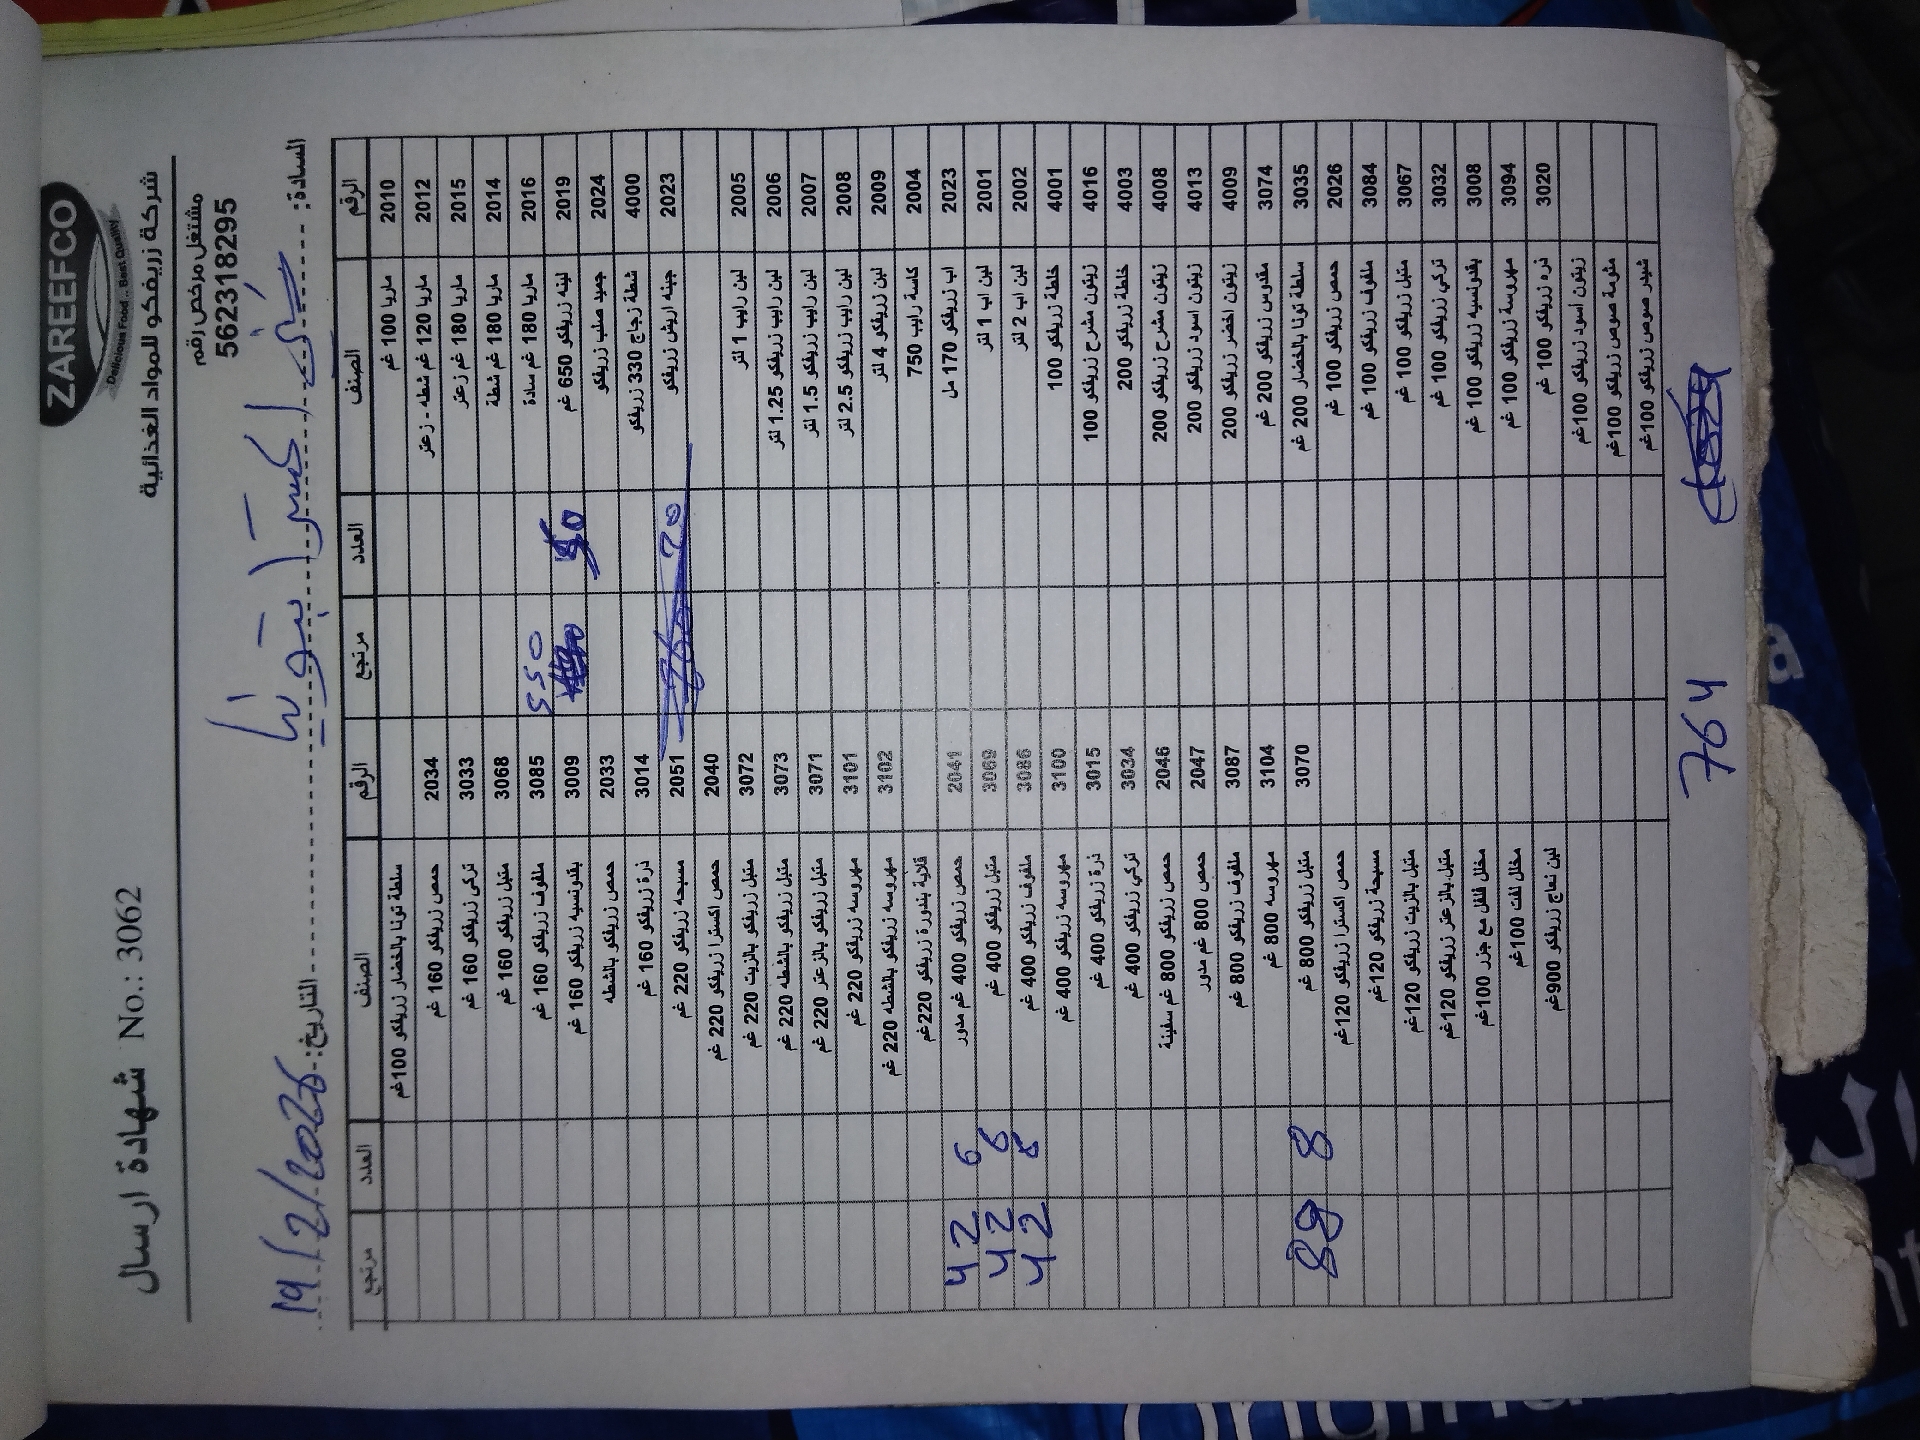 ZAREEFCO
Delicious Food.. Best Quality
شركة زريفكو للمواد الغذائية
شهادة ارسال No.: 3062
مشتغل مرخص رقم
562318295
السادة:
التاريخ: 19/2/2026
الرقم الصنف العدد مرتجع الرقم الصنف العدد مرتجع
2010 ماريا 100 غم سلطة تونا بالخضار زريفكو 100غم
2012 ماريا 120 غم شطه - زعتر 2034 حمص زريفكو 160 غم
2015 ماريا 180 غم زعتر 3033 تركي زريفكو 160 غم
2014 ماريا 180 غم شطة 3068 متبل زريفكو 160 غم
2016 ماريا 180 غم سادة 550 3085 ملفوف زريفكو 160 غم
2019 لبنه زريفكو 650 غم 50 3009 بقدونسيه زريفكو 160 غم
2024 جميد صلب زريفكو 2033 حمص زريفكو بالشطه
4000 شطة زجاج 330 زريفكو 3014 ذرة زريفكو 160 غم
2023 جبنه اريش زريفكو 20 2051 مسبحه زريفكو 220 غم
2040 حمص اكسترا زريفكو 220 غم
2005 لبن رايب 1 لتر 3072 متبل زريفكو بالزيت 220 غم
2006 لبن رايب زريفكو 1.25 لتر 3073 متبل زريفكو بالشطه 220 غم
2007 لبن رايب زريفكو 1.5 لتر 3071 متبل زريفكو بالزعتر 220 غم
2008 لبن رايب زريفكو 2.5 لتر 3101 مهروسه زريفكو 220 غم
2009 لبن زريفكو 4 لتر 3102 مهروسه زريفكو بالشطه 220 غم
2004 كاسة رايب 750 قلاية بندورة زريفكو 220غم
2023 اب زريفكو 170 مل 2041 حمص زريفكو 400 غم مدور 6 42
2001 لبن اب 1 لتر 3069 متبل زريفكو 400 غم 6 42
2002 لبن اب 2 لتر 3086 ملفوف زريفكو 400 غم 8 42
4001 خلطة زريفكو 100 3100 مهروسه زريفكو 400 غم
4016 زيتون مشرح زريفكو 100 3015 ذرة زريفكو 400 غم
4003 خلطة زريفكو 200 3034 تركي زريفكو 400 غم
4008 زيتون مشرح زريفكو 200 2046 حمص زريفكو 800 غم سفينة
4013 زيتون اسود زريفكو 200 2047 حمص 800 غم مدور
4009 زيتون اخضر زريفكو 200 3087 ملفوف زريفكو 800 غم
3074 مقدوس زريفكو 200 غم 3104 مهروسه 800 غم
3035 سلطة تونا بالخضار 200 غم 3070 متبل زريفكو 800 غم 8
2026 حمص زريفكو 100 غم حمص اكسترا زريفكو 120غم
3084 ملفوف زريفكو 100 غم مسبحة زريفكو 120غم
3067 متبل زريفكو 100 غم متبل بالزيت زريفكو 120غم
3032 تركي زريفكو 100 غم متبل بالزعتر زريفكو 120غم
3008 بقدونسيه زريفكو 100 غم مخلل فلفل مع جزر 100غم
3094 مهروسة زريفكو 100 غم مخلل لفت 100غم
3020 ذره زريفكو 100 غم لبن نعاج زريفكو 900غم
زيتون أسود زريفكو 100غم
مثومة صوص زريفكو 100غم
شيدر صوص زريفكو 100غم
764